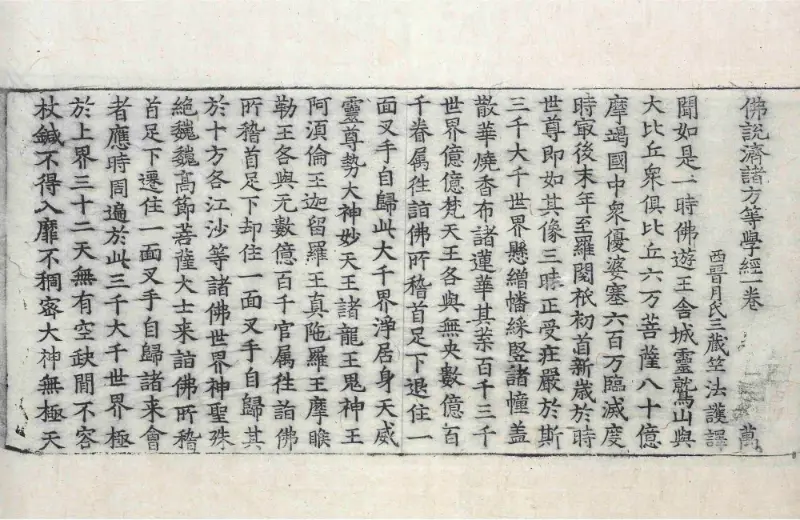 佛說濟諸方等學經一卷 萬
西晉月氏三藏竺法護譯
聞如是一時佛遊王舍城靈鷲山與
大比丘衆俱比丘六万菩薩八十億
摩竭國中衆優婆塞六百万臨滅度
時㝡後末年至羅閱祇初首新歲於時
世尊即如其像三昧正受莊嚴於斯
三千大千世界懸繒幡綵竪諸幢蓋
散華燒香布諸蓮華其葉百千三千
世界億億梵天王各與無央數億百
千眷属徃詣佛所稽首足下退住一
面叉手自歸此大千界淨居身天威
靈尊勢大神妙天王諸龍王鬼神王
阿湏倫王迦留羅王真陁羅王摩睺
勒王各與无數億百千官属徃詣佛
所稽首足下却住一面叉手自歸其
於十方各江沙等諸佛世界神聖殊
絶魏魏髙節菩薩大士来詣佛所稽
首足下遷住一面叉手自歸諸来會
者應時周遍於此三千大千世界極
於上界三十二天無有空缺間不容
杖鍼不得入靡不稠宻大神無極天